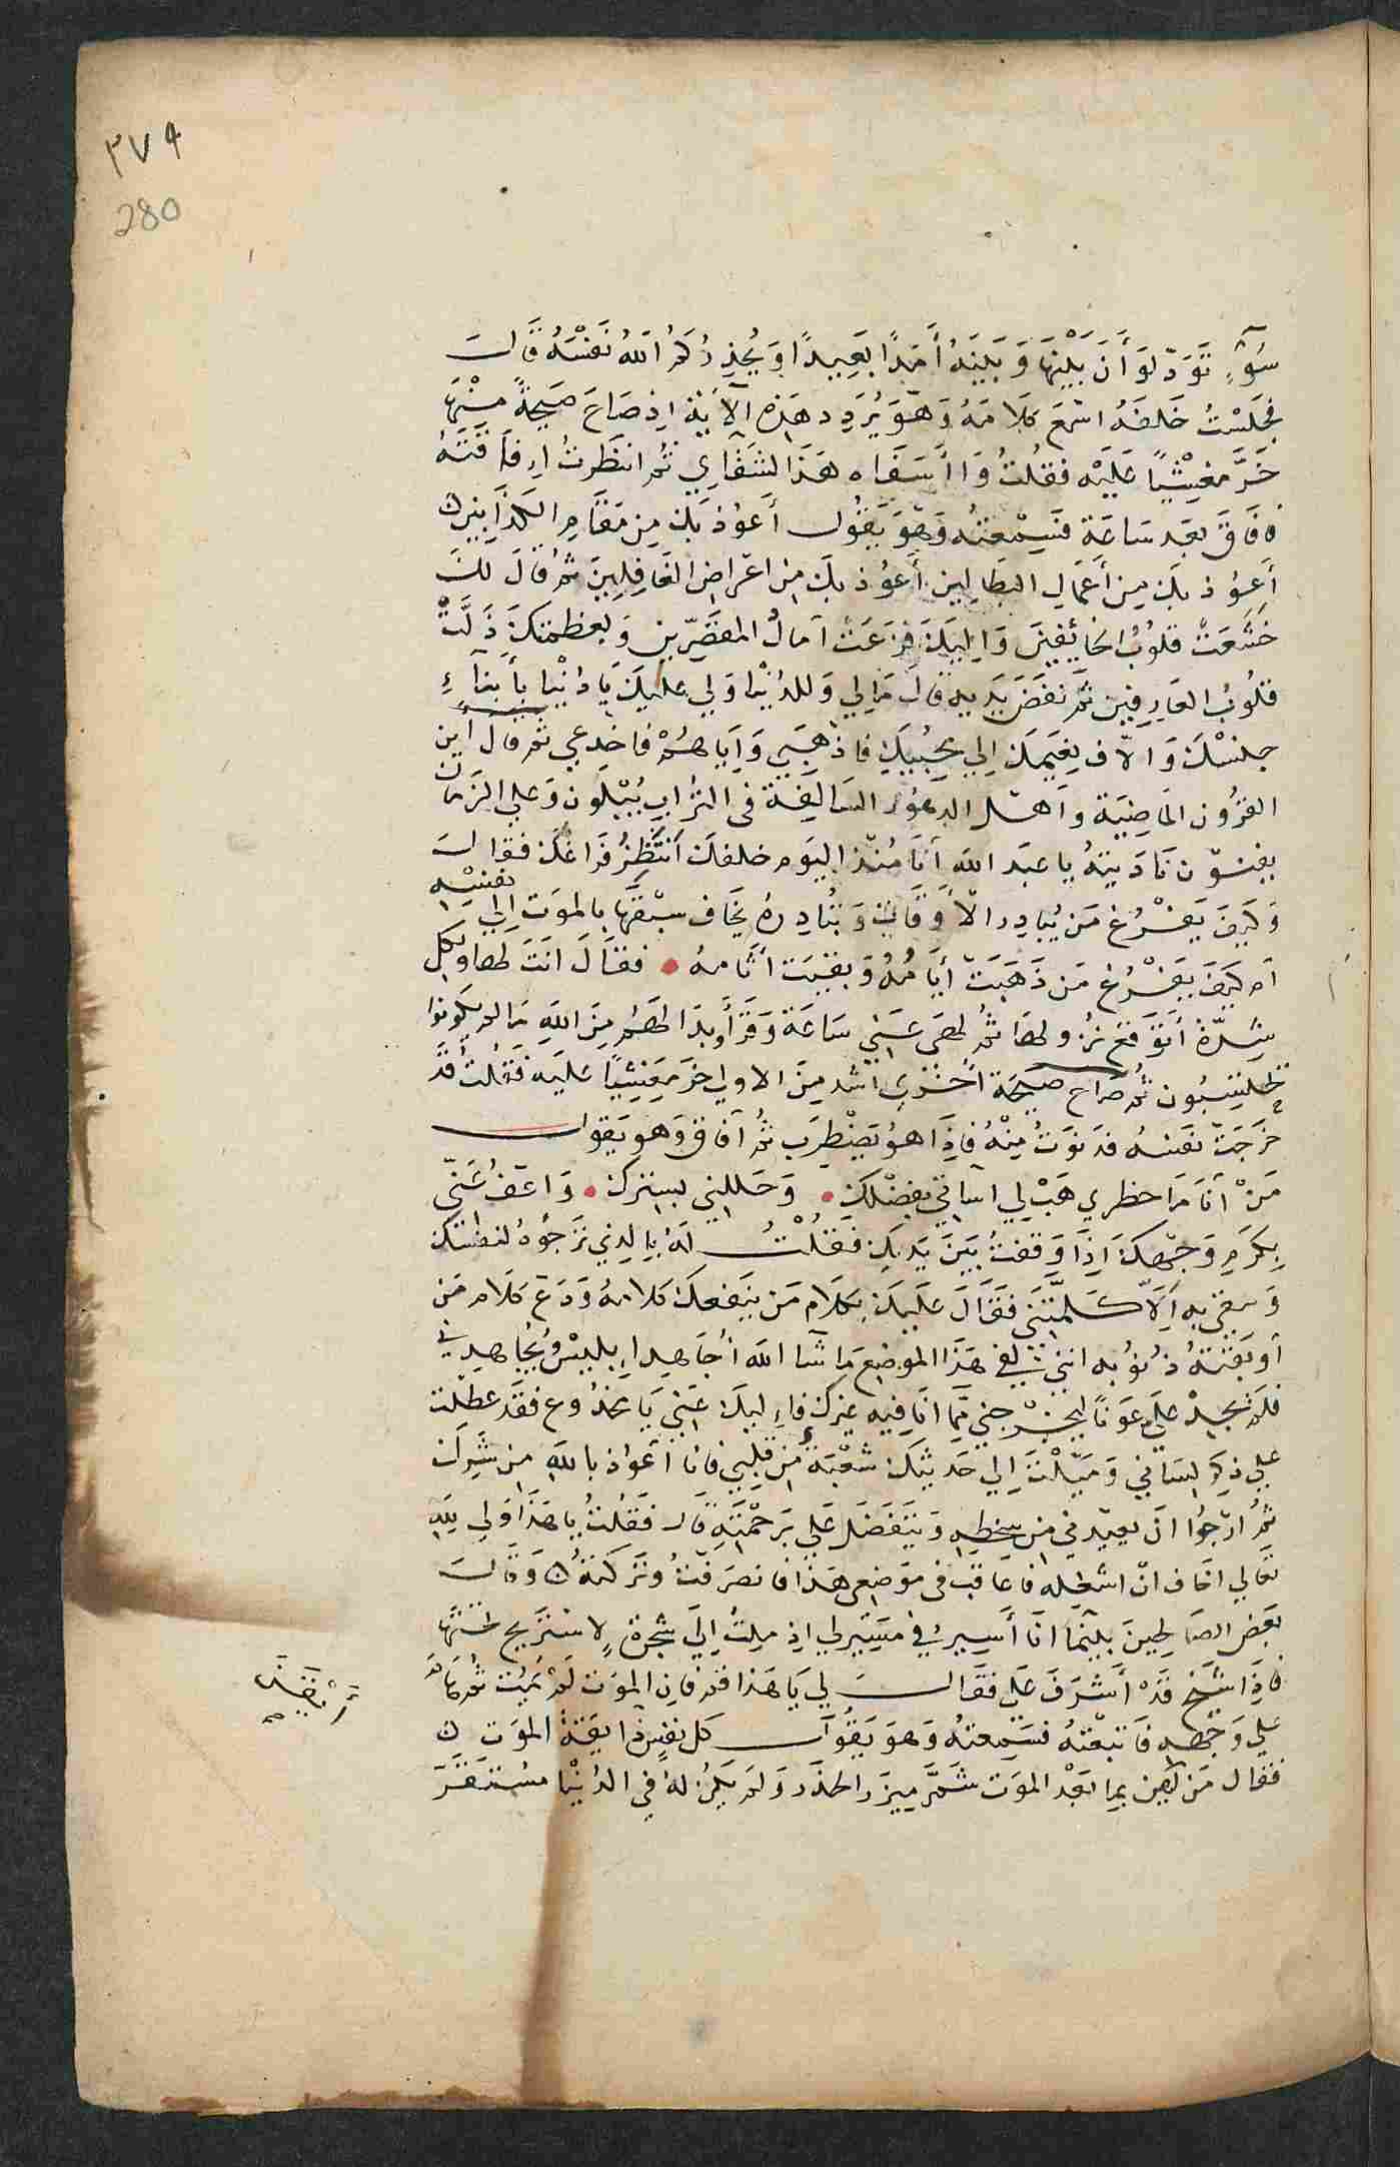 ٣٧٩
280
سُوْءٍ تَوَدّ لَوْ أَنَ بَيْنَهَا وَ بَيْنَهُ أَمَدًا بَعِيدًا وَ يُحَذِّرُكُمُ اللهُ نَفْسَهُ قَالَ
فجَلَسْتُ خَلفَهُ اسْمَعُ كَلَامَهُ وَهوَ يُرَدِد هَذِه الآيَة اِذ صَاحَ صَيحَةً مِنْهَا
خَرَّ مَغشِيًا عَلَيْهِ فقُلتُ وَا أَسَفَاه هَذَا لشَقَاي ثُمَّ انتَظَرتُ اِفَاقَتَهُ
فافَاقَ بَعد سَاعَة فَسَمِعتُه وَهوَ يَقُول أَعوُذ بِكَ مِن مَقَامِ الكَذَّابِينَ
أَعوُذ بِكَ مِن أَعمَالِ البَطّالِين أَعوُذ بِكَ مِن اعراض الغَافِلِينَ ثم قالَ لكَ
خَشَعَتْ قلوُبُ الخَائِفينَ وَ اِليكَ فزعَت آمالُ المقَصِّرِين وَ لِعظَمتكَ ذَلَّتْ
قلُوُبُ العَارِفين ثمَّ نفَضَ يَديه قالَ مَا لِي وَ للدُنيَا وَ لي عليكِ يَا دُنيَا بأبناءِ
جِنسْكِ وَ الاّف نِعَيمكِ اِلي مُحِبيكِ فاذهَبِي وَ اِيَاهُمْ فاخدعي ثم قال أين
القرُون الماضِيَة واهل الدهوُر السَالِفة في التُرابِ يُبْلَون وَ علي الزمَان
يفنوْن نَادَيتُهُ يا عبد الله أنَا مُنذ اليَوم خلفكَ أنتَظِرُ فَراغكَ فقال
وَ كَيفَ يَفرُغُ مَن يُبَادِر الأوقَاتِ وَ تُبَادِرهُ يَخَاف سبْقَهَا بالموَت إِلي نفسِه
أم كَيفَ يَفرُغ مَن ذَهَبَتْ أيامُهُ وَ بقيَت آثَامهُ فقَالَ أنتَ لها ولكل
شِدّة أتَوَقع نزُولها ثمَّ لهى عَنِي سَاعَة وَ قَرَأ وبَدَا لهُم مِنَ اللهِ مَا لم يَكونوُا
يحتَسِبُون ثُم صَاح صَيحَة أُخرى أشد مِنَ الاولي خرَّ مغشِيًا عَليه فقلتُ قد
خرَجَتْ نفسه فدَنوَتُ مِنهُ فإِذَا هوُ يَضْطرِب ثمَّ آفاق وَهو يَقول
مَنْ أنَا مَا خطري هَبْ لِي اساتي بفضْلكَ وَ جَلِلني بسِترك وَ اعفُ عَنّي
بِكرَمِ وَجهِكَ إذَا وَقفتُ بَينَ يَديكَ فقُلْتُ لهُ بِالذِي تَرجُوهُ لنفسَكَ
وَ تثق به إلاَّ كَلمْتَنِي فقَالَ عَليكَ بكَلَام مَن يَنفعكَ كلامهُ وَ دَع كَلَام مَن
أوبَقَتهُ ذُنوُبه انني لفي هَذَا الموَضِع مَا شَا الله أُجَاهِد إِبليسَ وَ يُجاهِدني
فلَم يَجِد عَليَّ عَونًا ليخرجنِي مِمّا انَا فِيهِ غيركَ فإِليكَ عَنِي يَا مخدُوع فقَد عطّلتَ
علي ذِكر لِسَاني وَ مَيّلْتَ إلي حَديثِكَ شُعْبَةً مِن قلبِي فانا أعوُذ باللهِ مِن شَرِكَ
ثُمَّ ارجُوا ان يعيذني مِن سخطِه وَ يَتَفَضَل عَلي بَرحْمَتهِ قالَ فقُلتُ يا هَذَا وَلي للهِ
تعَالي اخَاف ان اشغله فاعَاقب في مَوَضِعي هَذَا فانصَرفتُ وَتركتهُ وَقالَ
بَعض الصَالحِينَ بَينَما انَا أسِيرُ في مَسيري اِذ مِلتُ اِليَ شَجَرة لاستَريح تحتَهَا
فإِذَا شَيخ قدْ أشرَفَ عَلي فقَالَ لِي يَا هَذا قم فان الموَت لم يَمُت ثُم هَامَ
علي وَجهِه فَاتبَعْتهُ فسَمِعتهُ وَهوَ يَقُول كل نفسٍ ذَايقَةُ الموَت
فقال مَن أيقن بما بَعْد الموَت شَمّرَ مِيزَر الحذَر وَ لم يَكن لهُ في الدُنيَا مُستَقَرَ
أَيْقَنَ